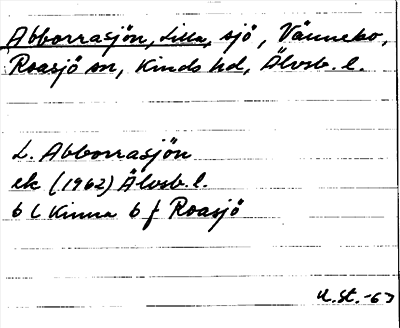 Abborrasjön, Lilla, sjö, Vänneko,
Roasjö sn, Kinds hd, Älvsb. l.
L. Abborrasjön
ek (1962) Älvsb. l.
6 C Kinna 6 f Roasjö
U.St. -67